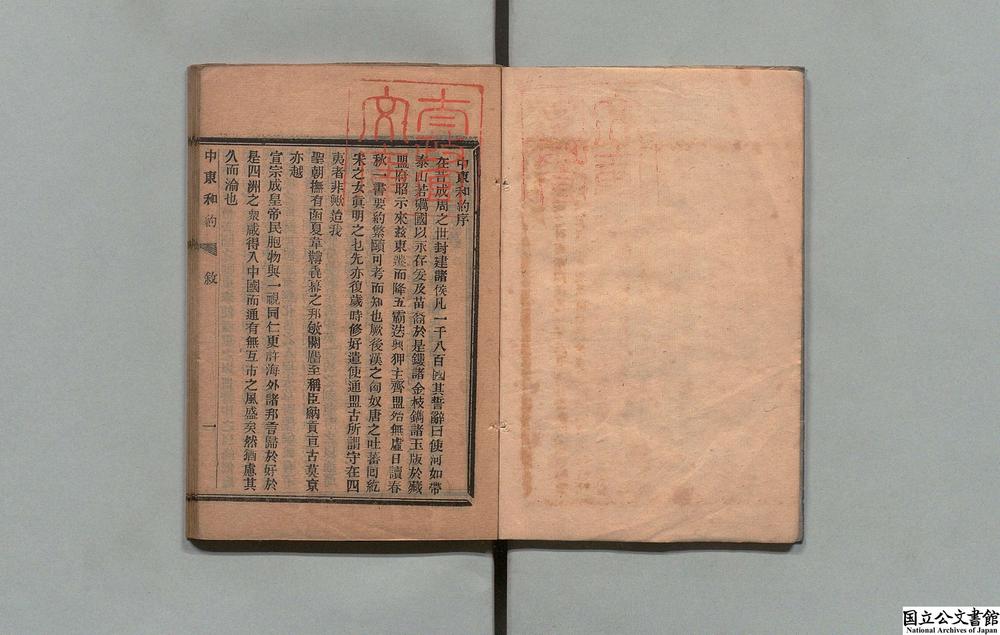 中東和約序
在昔成周之世封建諸侯凡一千八百國其誓辭曰使河如帶
泰山若礪國以永存爰及苗裔於是鏤諸金枝鐫諸玉版於藏
盟府昭示來茲東遷而降五霸迭興狎主齊盟殆無虛日讀春
秋一書要約繁賾可考而知也厥後漢之匈奴唐之吐蕃回紇
宋之女真明之也先亦復歲時修好遣使通盟古所謂守在四
夷者非歟迨我
聖朝撫有函夏韋韝毳幕之邦敏關麕至稱臣納貢亘古莫京
亦越
宣宗成皇帝民胞物與一視同仁更許海外諸邦言歸於好於
是四洲之衆咸得入中國而通有無互市之風盛矣然猶慮其
久而渝也
中東和約
敘
一
国立公文書館
National Archives of Japan